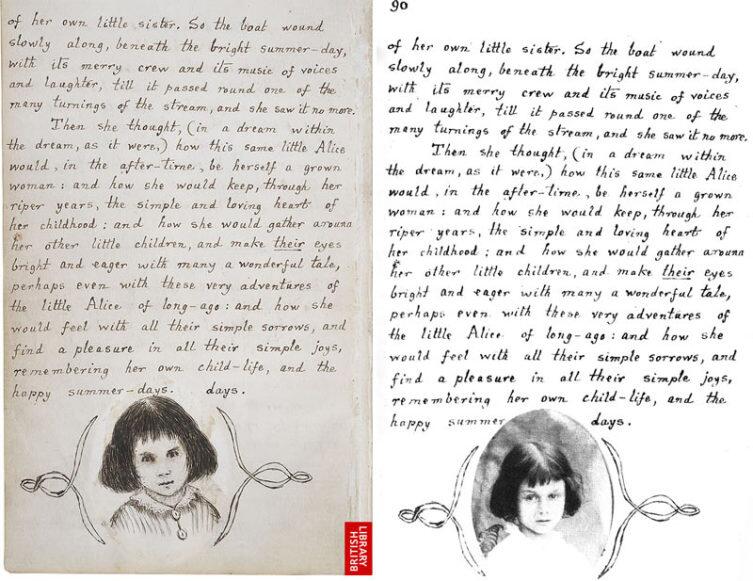 of her own little sister. So the boat wound
slowly along, beneath the bright summer-day,
with its merry crew and its music of voices
and laughter, till it passed round one of the
many turnings of the stream, and she saw it no more.
Then she thought, (in a dream within
the dream, as it were,) how this same little Alice
would, in the after-time, be herself a grown
woman: and how she would keep, through her
riper years, the simple and loving heart of
her childhood: and how she would gather around
her other little children, and make their eyes
bright and eager with many a wonderful tale,
perhaps even with these very adventures of
the little Alice of long-ago: and how she
would feel with all their simple sorrows, and
find a pleasure in all their simple joys,
remembering her own child-life, and the
happy summer-days. days.
BRITISH
LIBRARY
90
of her own little sister. So the boat wound
slowly along, beneath the bright summer-day,
with its merry crew and its music of voices
and laughter, till it passed round one of the
many turnings of the stream, and she saw it no more.
Then she thought, (in a dream within
the dream, as it were,) how this same little Alice
would, in the after-time, be herself a grown
woman: and how she would keep, through her
riper years, the simple and loving heart of
her childhood: and how she would gather around
her other little children, and make their eyes
bright and eager with many a wonderful tale,
perhaps even with these very adventures of
the little Alice of long-ago: and how she
would feel with all their simple sorrows, and
find a pleasure in all their simple joys,
remembering her own child-life, and the
happy summer days.